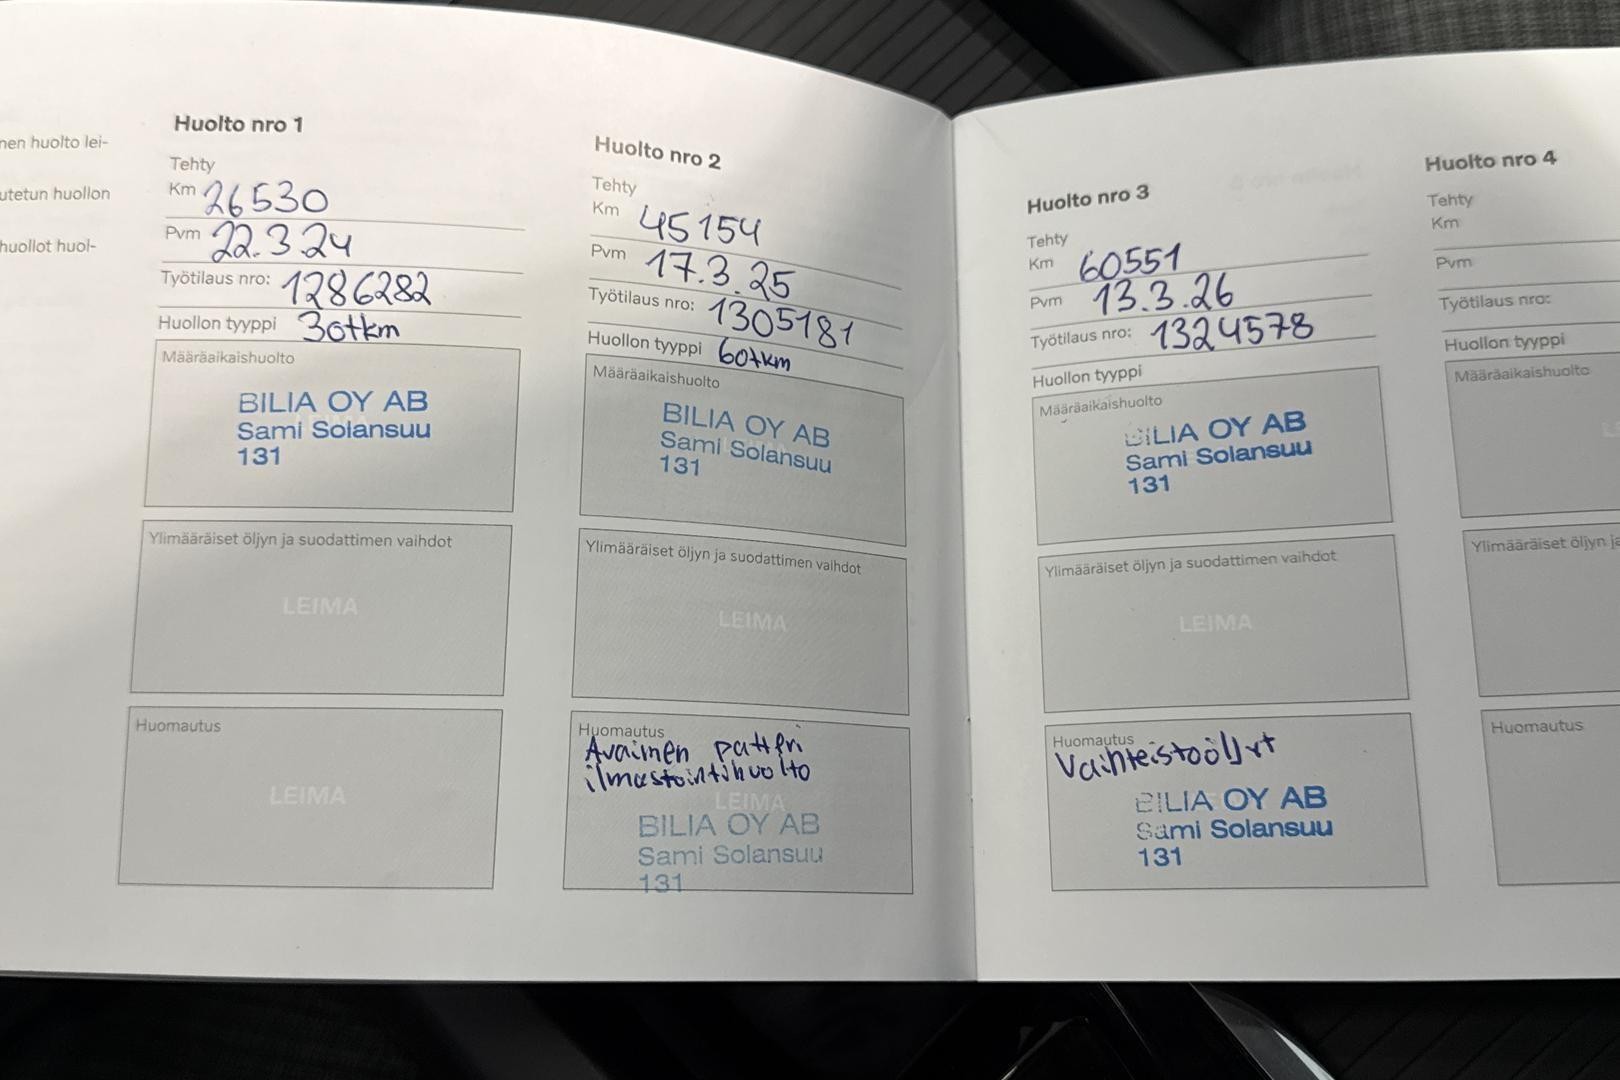 nen huolto lei-
utetun huollon
huollot huol-
Huolto nro 1
Tehty
Km 26530
Pvm 22.3.24
Työtilaus nro: 1286282
Huollon tyyppi 30tkm
Määräaikaishuolto
BILIA OY AB
Sami Solansuu
131
Ylimääräiset öljyn ja suodattimen vaihdot
LEIMA
Huomautus
LEIMA
Huolto nro 2
Tehty
Km 45154
Pvm 17.3.25
Työtilaus nro: 1305181
Huollon tyyppi 60tkm
Määräaikaishuolto
BILIA OY AB
Sami Solansuu
131
Ylimääräiset öljyn ja suodattimen vaihdot
LEIMA
Huomautus
Avaimen patteri
ilmastointihuolto
LEIMA
BILIA OY AB
Sami Solansuu
131
Huolto nro 3
Tehty
Km 60551
Pvm 13.3.26
Työtilaus nro: 1324578
Huollon tyyppi
Määräaikaishuolto
BILIA OY AB
Sami Solansuu
131
Ylimääräiset öljyn ja suodattimen vaihdot
LEIMA
Huomautus
Vaihteistoöljyt
BILIA OY AB
Sami Solansuu
131
Huolto nro 4
Tehty
Km
Pvm
Työtilaus nro:
Huollon tyyppi
Määräaikaishuolto
Ylimääräiset öljyn ja
Huomautus